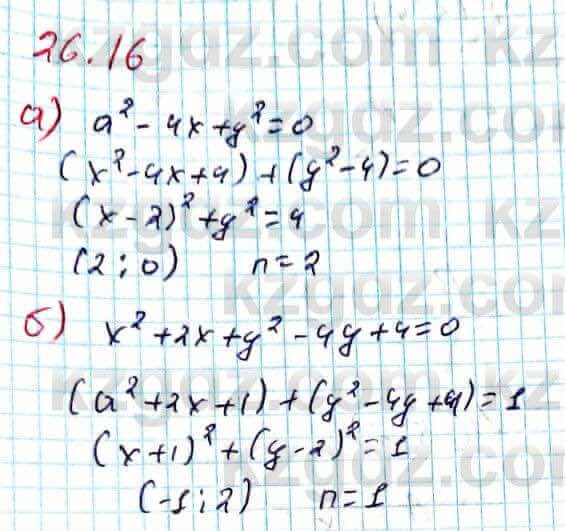 26.16
а) a² - 4x + y² = 0
(x² - 4x + 4) + (y² - 4) = 0
(x - 2)² + y² = 4
(2 ; 0) n = 2
б) x² + 2x + y² - 4y + 4 = 0
(a² + 2x + 1) + (y² - 4y + 4) = 1
(x + 1)² + (y - 2)² = 1
(-1 ; 2) n = 1
kzgdz.com